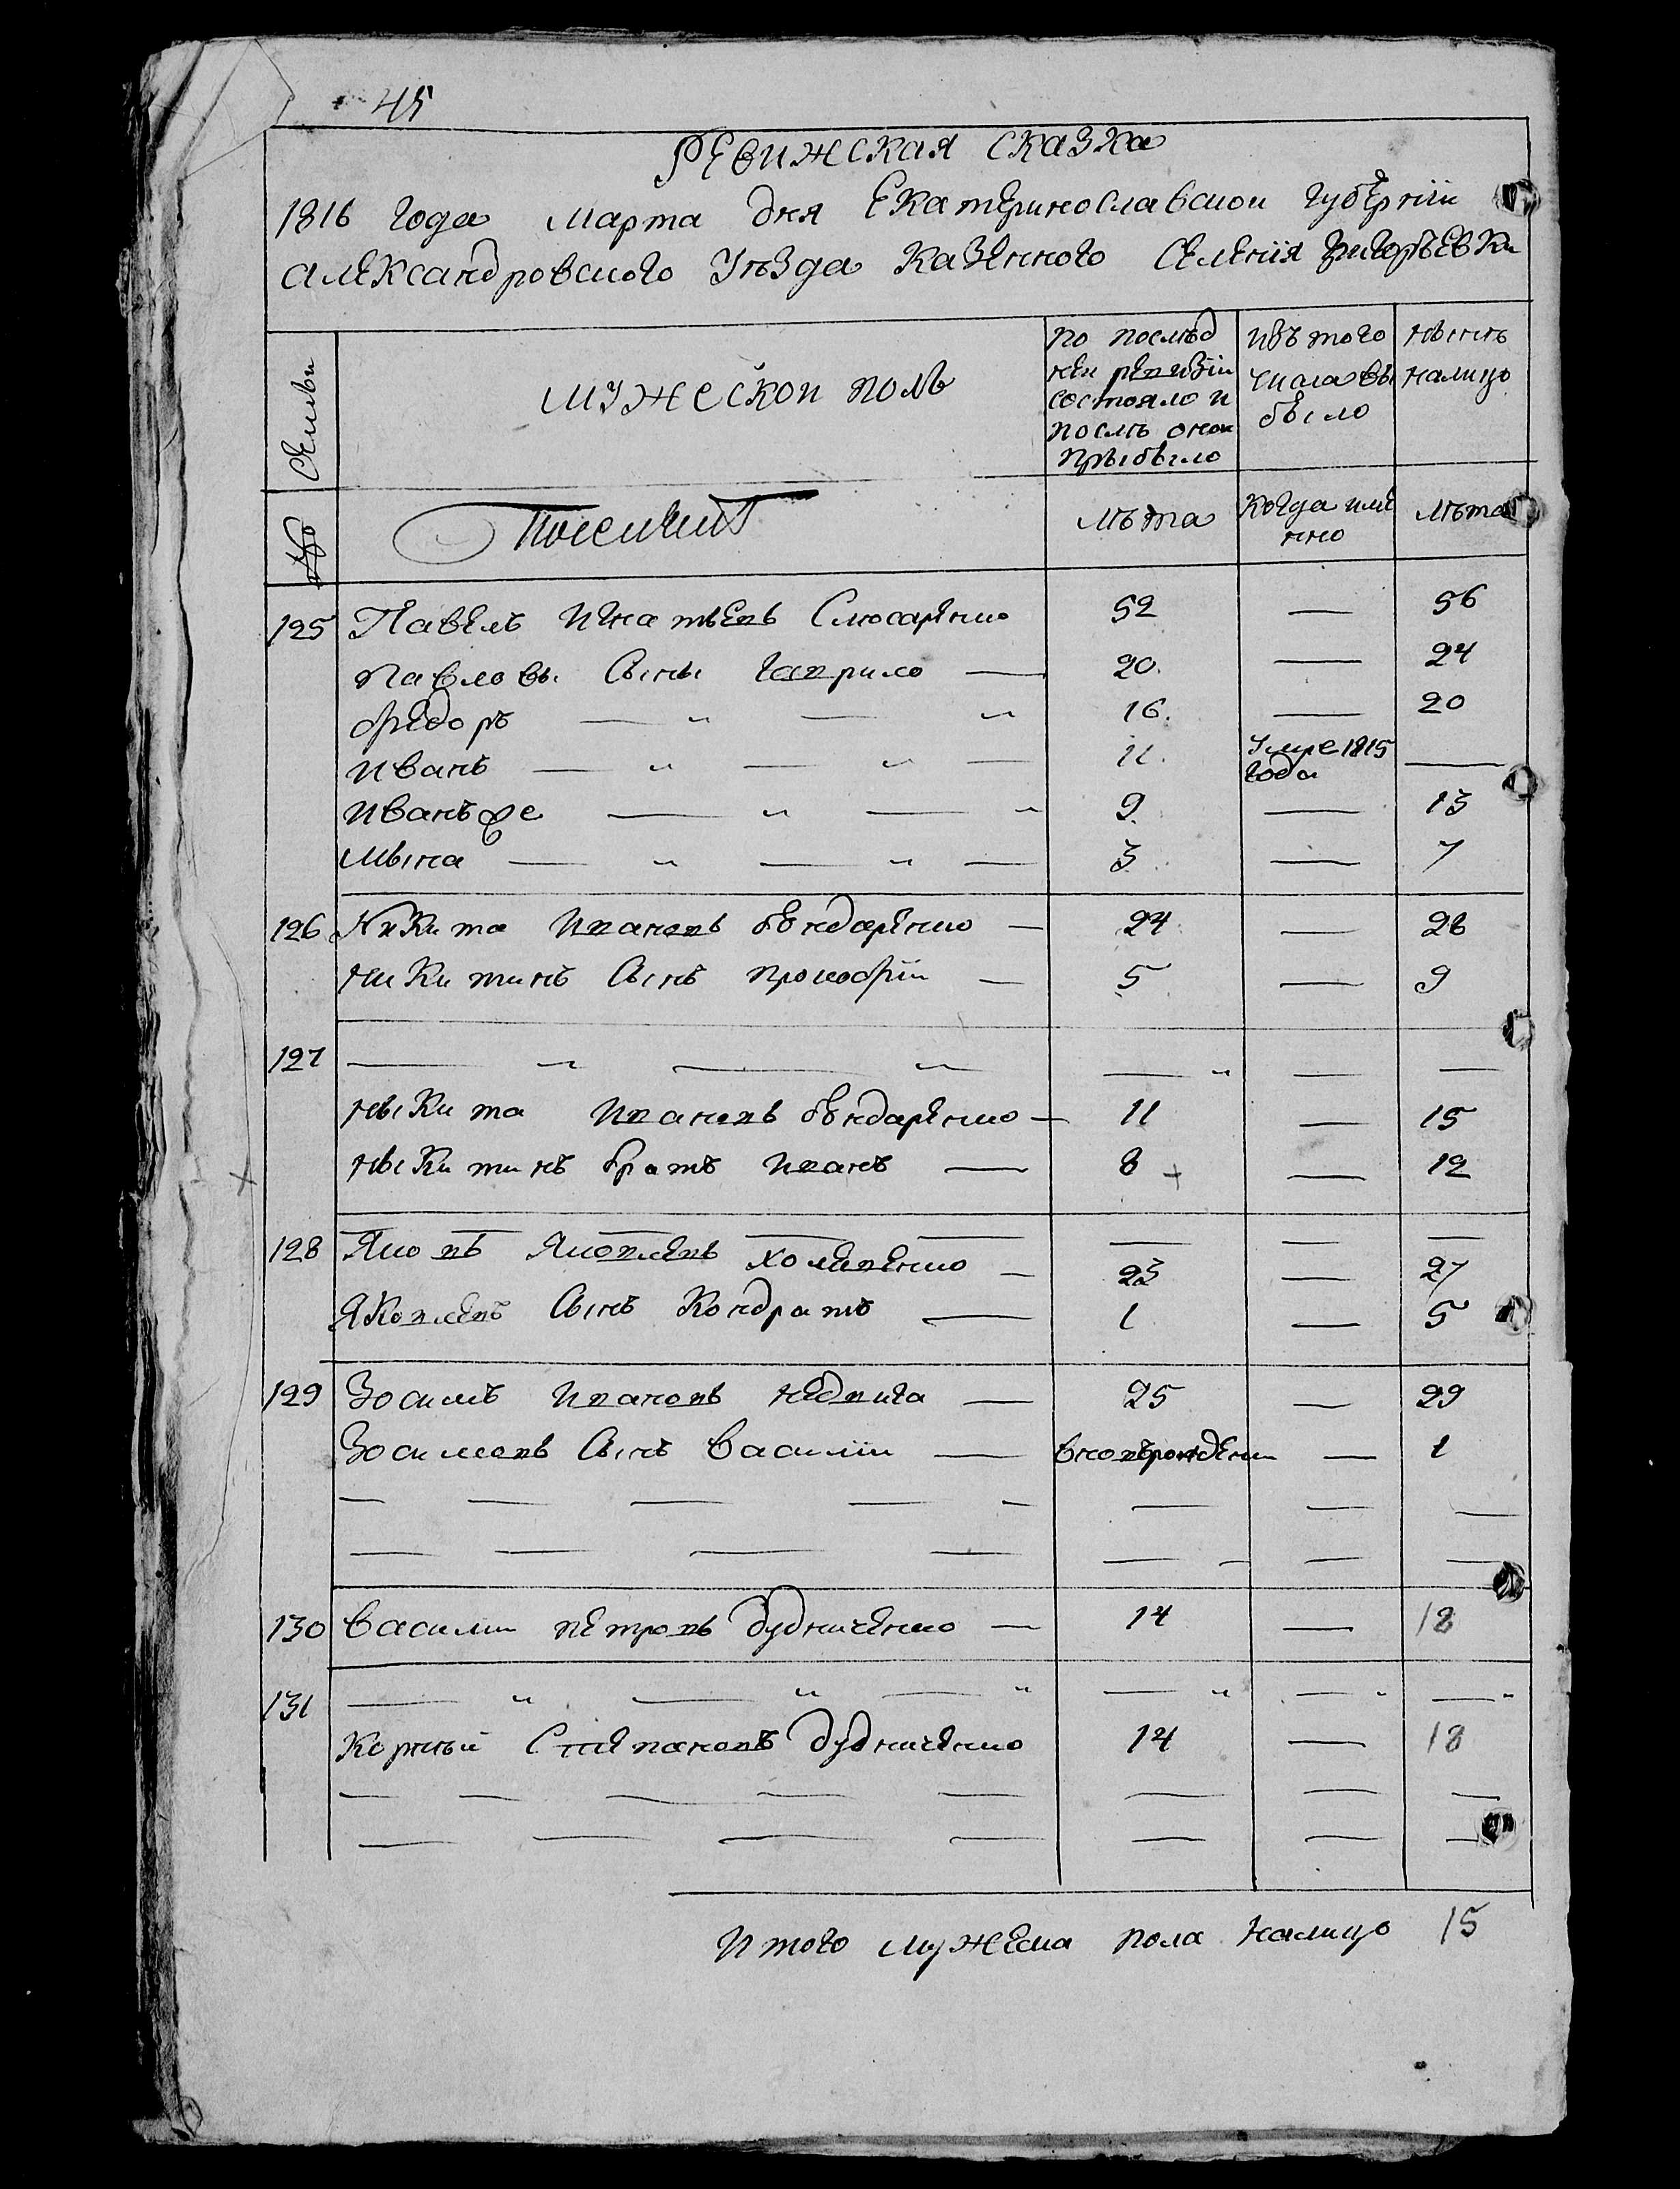 45
РЕВИЖСКАЯ СКАЗКа
1816 года Марта дня Екатеринославской губернии
Александровского Уѣзда Казенного Селенія Григорьевки
Семьи
мужескои полъ
по послѣд
неи ревизіи
состояло и
послѣ онои
прыбыло
изъ того
числа вы
было
нынѣ
налицо
лѣта
Когда име
нно
лѣта
125 Павелъ Игнатьевъ Слюсаренко 52 — 56
Павловы Сыны Гаврило — 20. — 24
Фредоръ — " — " 16. — 20
Иванъ — " — " — 11. Умре 1815 года —
Иванъ же — " — " 9 — 13
Мына — " — " — 3 — 7
126 Никита Ивановъ бондаренко — 24 — 28
Никитинъ Сынъ прокофіи — 5 — 9
127 — " — " — " — —
Ныкита Ивановъ бондаренко — 11 — 15
Ныкитинъ братъ Иванъ — 8 + — 12
128 Яковъ Яковлевъ Хоменко — 23 — 27
Яковлевъ Сынъ Кондратъ — 1 — 5
129 Зосимъ Ивановъ недвига — 25 — 29
Зосимовъ Сынъ Василіи — вновьрожденн — 1
— — — — — — — —
— — — — — — — —
130 Василии петровъ дудниченко — 14 — 18
131 — " — " — " — " — " — "
Корнѣй Степановъ дудниченко 14 — 18
— — — — — — — —
— — — — — — —
Итого мужеска пола налицо 15